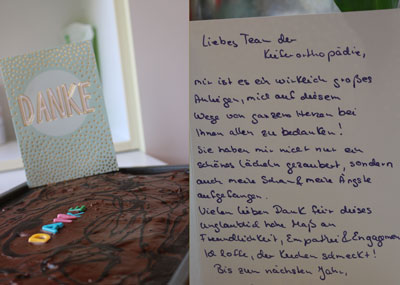 DANKE
DANKE
Liebes Team der
Kieferorthopädie,
mir ist es ein wirklich großes
Anliegen, mich auf diesem
Wege von ganzem Herzen bei
Ihnen allen zu bedanken!
Sie haben mir nicht nur ein
schönes Lächeln gezaubert, sondern
auch meine Scham & meine Ängste
aufgefangen.
Vielen lieben Dank für dieses
unglaublich hohe Maß an
Freundlichkeit, Empathie & Engagement
Ich hoffe, der Kuchen schmeckt!
Bis zum nächsten Jahr,